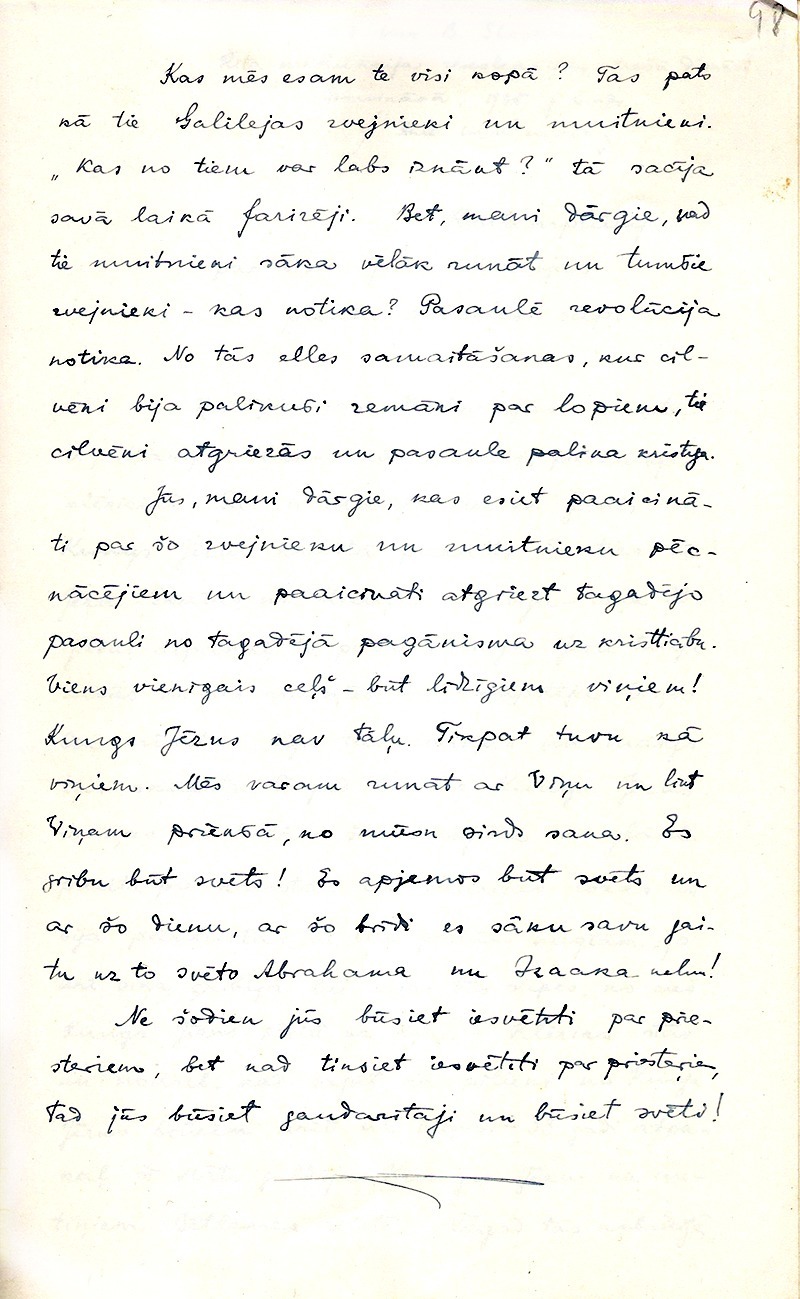 98
Kas mēs esam te visi kopā? Tas pats
kā tie Galilejas zvejnieki un muitnieki.
„Kas no tiem var labs iznākt?" tā sacīja
savā laikā farizēji. Bet, mani dārgie, kad
tie muitnieki sāka vēlāk runāt un tumšie
zvejnieki – kas notika? Pasaulē revolūcija
notika. No tās elles samaitāšanas, kur cil-
vēki bija palikuši zemāki par lopiem, tie
cilvēki atgriezās un pasaule palika kristīga.
Jūs, mani dārgie, kas esiet paaicinā-
ti par šo zvejnieku un muitnieku pēc-
nācējiem un paaicināti atgriezt tagadējo
pasauli no tagadējā pagānisma uz kristticību.
Viens vienīgais ceļš – būt līdzīgiem viņiem!
Kungs Jēzus nav tāļu. Tikpat tuvu kā
viņiem. Mēs varam runāt ar Viņu un likt
Viņam priekšā, ko mūsu sirds sana. Es
gribu būt svēts! Es apņemos būt svēts un
ar šo dienu, ar šo brīdi es sāku savu gai-
tu uz to svēto Abrahama un Izaaka kalnu!
Ne šodien jūs būsiet iesvētīti par prie-
steriem, bet kad tiksiet iesvētīti par priesteŗiem,
tad jūs būsiet gandarītāji un būsiet svēti!